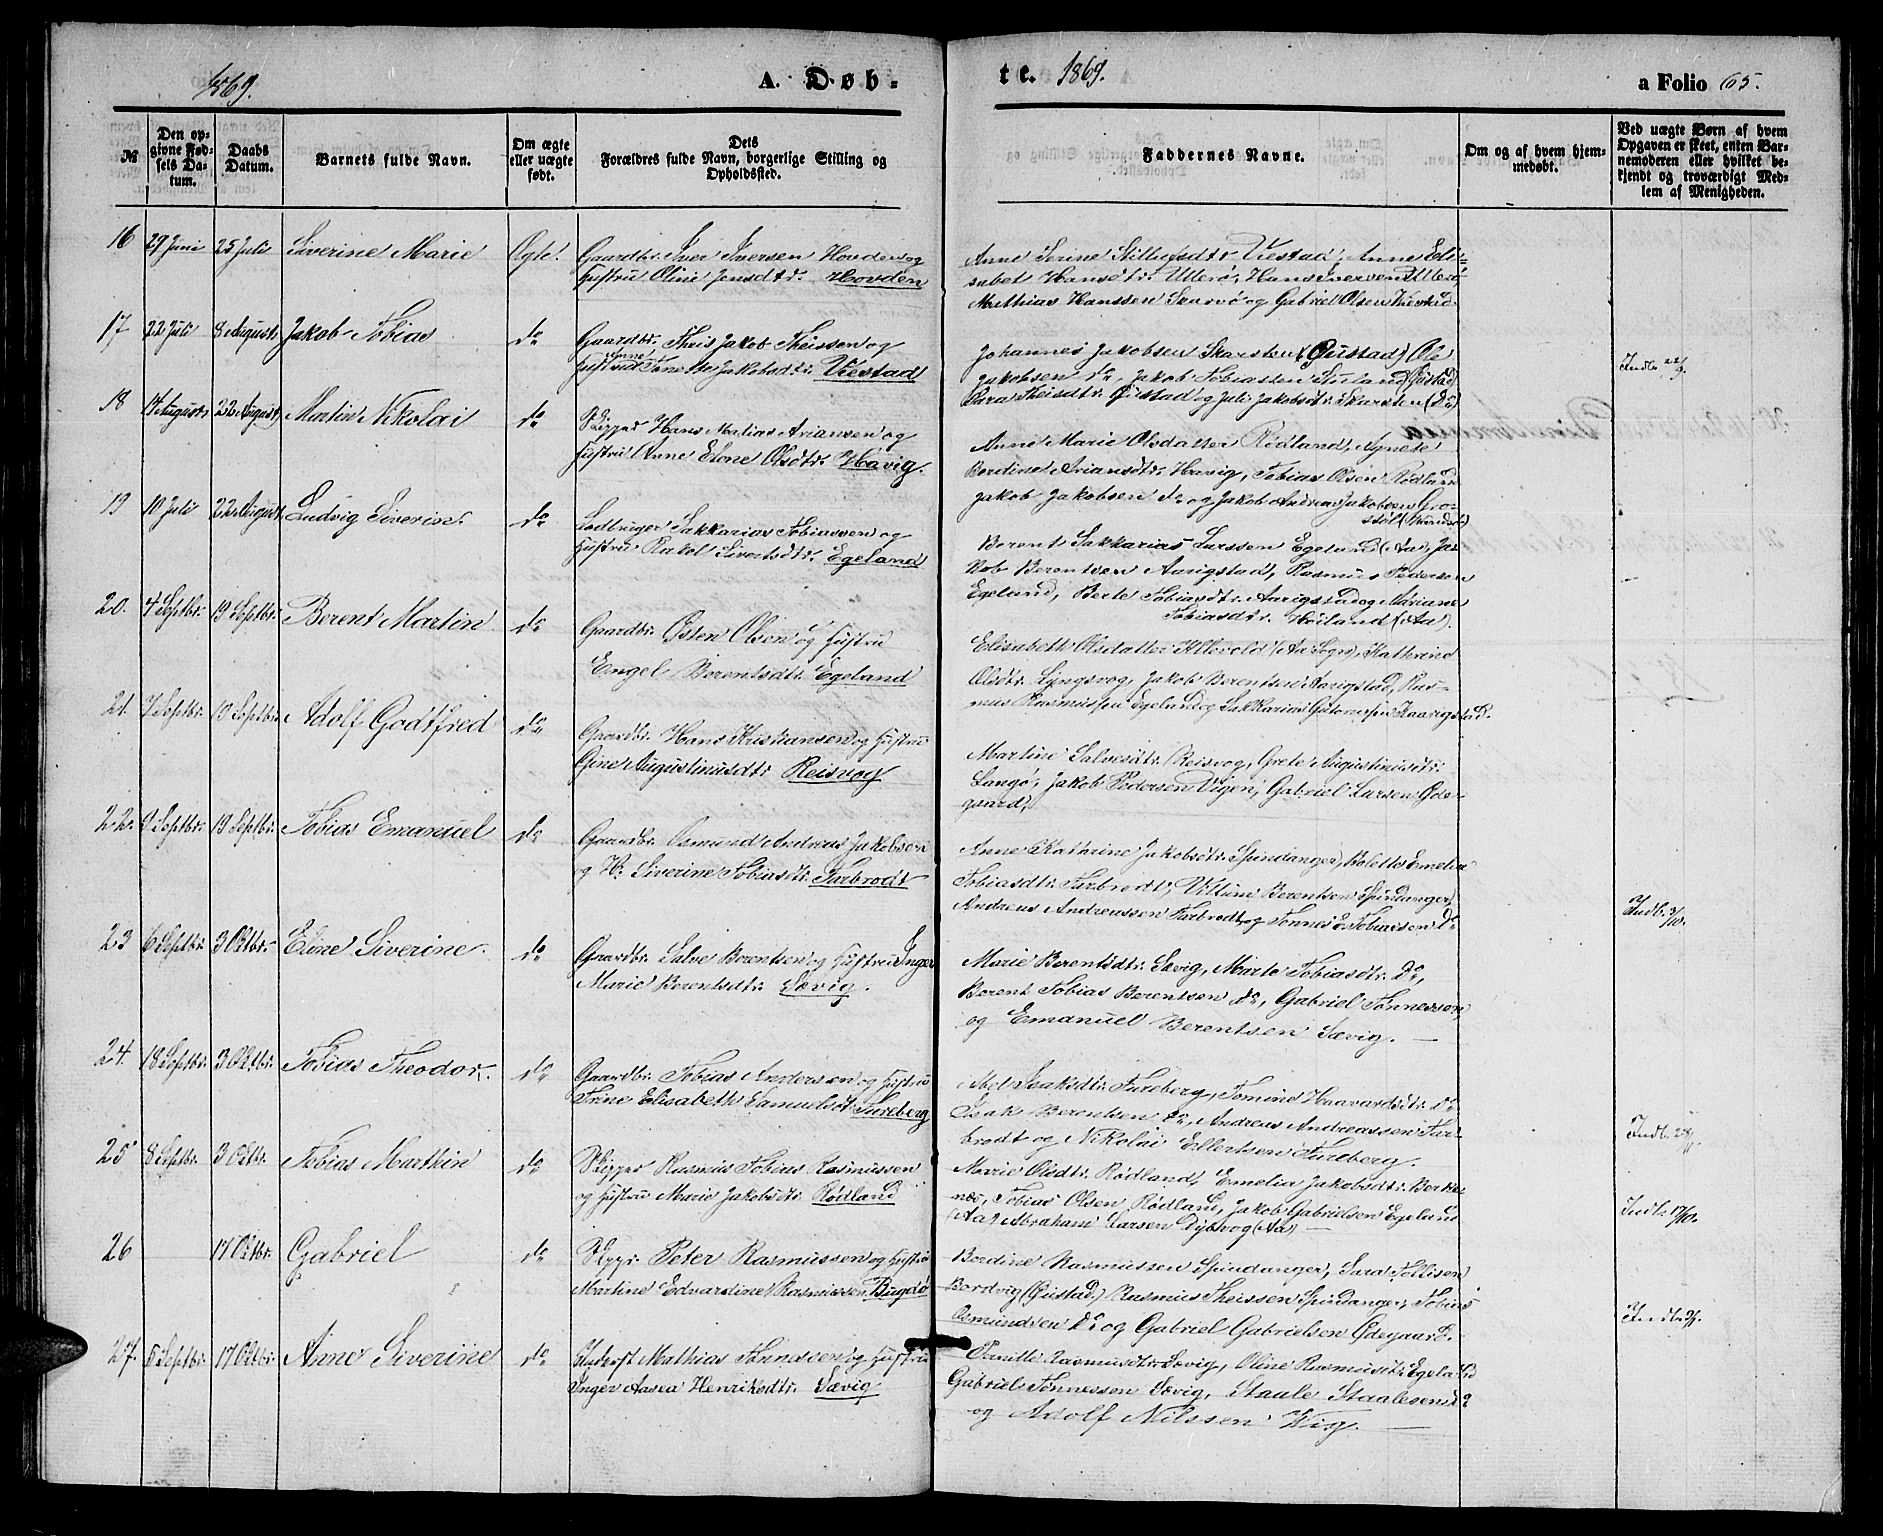 1869.
A. Døb-
te. 1869.
a Folio 65.
№
Den opgivne Fødsels Datum.
Daabs Datum.
Barnets fulde Navn.
Om ægte eller uægte født.
Dets Forældres fulde Navn, borgerlige Stilling og Opholdssted.
Faddernes Navne.
Om og af hvem hjemmedøbt.
Ved uægte Børn af hvem Opgaven er skeet, enten Barnemoderen eller hvilket bekjendt og troværdigt Medlem af Menigheden.
16 29 Juni 25 Juli Siverine Marie Ægte.
Gaardbr. Iver Iversen Hovden og
Hustru Oline Jensdtr. Hovden
Anne Serine Viestad, Anne Eli-
sabet Hansdtr. Ullerø, Hans Iversen Ullerø,
Mathias Hanssen og Gabriel Olsen Viestad.
17 22 Juli 8 August Jakob Tobias do
Gaardbr. Theis Jakob Theissen og
Hustru Anne Tonette Jakobsdtr. Viestad
Johannes Jakobsen Skarsten (Øiestad) Ole
Jakobsen do, Jakob Tobiassen (Øistad)
Sara Theisdtr. Øistad og Juli Jakobsdtr. Skarsten (Do)
Indb. 22/9.
18 14 August 22 August Martin Nikolai do
Skipper Hans Matias Ariansen og
Hustru Anne Elene Olsdtr. Havig.
Anne Marie Olsdatter Rødland, Agnete
Berdine Ariansdtr. Havig, Tobias Olsen Rødland
Jakob Jakobsen do og Jakob Andreas Jakobsen Gro-
støl
19 10 Juli 22 August Ludvig Siverin. do
Jordbruger Sakkarias Tobiassen og
Hustru Rakel Sivertsdtr. Egeland
Berent Sakkarias Larssen Egeland (Aa), Ja-
kob Berentsen Aarigstad, Rasmus Pedersen
Egeland, Berte Tobiasdtr. Aarigstad og Adriane
Tobiasdtr. Høiland (Aa).
20. 4 Septbr. 19 Septbr. Berent Martin do
Gaardbr. Østen Olsen og Hustru
Engel Berentsdtr. Egeland
Elisabeth Olsdatter (Aa Sogn), Kathrine
Olsdtr. Lyngsvog, Jakob Berentsen Aarigstad, Ras-
mus Rasmussen Egeland og Sakkarias Kaarigstad.
21. 7 Septbr. 19 Septbr. Adolf Godtfred do
Gaardbr. Hans Kristiansen og Hustru
Gine Augustinusdtr. Reisvog
Martine Salvesdtr. Reisvog, Grete Augustinusdtr.
Langø, Jakob Pedersen Vigen, Gabriel Larsen Øde-
gaard,
22. 9 Septbr. 19 Septbr. Tobias Emanuel do
Gaardbr. Osmund Andreas Jakobsen
og H. Siverine Tobiasdtr. Furbrodt
Anne Kathrine Jakobsdtr. Spindanger, Bolette Emelia
Tobiasdtr. Furbrodt, Villum Berentsen Spindanger,
Andreas Andreassen Furbrodt og Tønnes E. Tobiassen Do
Indb. 3/10.
23 6 Septbr. 3 Oktbr. Elene Siverine. do
Gaardbr. Salve Berentsen og Hustru Inger
Marie Berentsdtr. Sævig.
Marie Berentsdtr. Sævig, Marte Tobiasdtr. Do,
Berent Tobias Berentsen do, Gabriel Tønnessen,
og Emanuel Berentsen Sævig.
24. 18 Septbr. 3 Oktbr. Tobias Theodor. do
Gaardbr. Tobias Andersen og Hustru
Trine Elisabeth Samuelsdt. Fureberg
Abel Isaksdtr. Fureberg, Tomine Haavardsdtr. do
Isak Berentsen do, Andreas Andreassen Fur-
brodt og Nikolai Ellertsen Fureberg.
25 8 Septbr. 3 Oktbr. Tobias Marthin do
Skipper Rasmus Tobias Rasmussen
og Hustru Marie Jakobsdtr. Rødland
Marie Olsdtr. Rødland, Emelia Jakobsdtr. Berke-
nes, Tobias Olsen Rødland, Jakob Gabrielsen Egeland
(Aa) Abraham Larsen Dybvog (Aa)
Indb. 17/10.
26 17 Oktbr. Gabriel do
Skippr. Peter Rasmussen og Hustru
Martine Edvardine Rasmussen Bugdø
Berdine Rasmussen Spindanger, Sara Tollisen
Bordvig (Øistad.) Rasmus Theissen Spindanger, Tobias
Osmundsen Do og Gabriel Gabrielsen Ødegaard.
27. 5 Septbr. 17 Oktbr. Anne Siverine do
Inderst Mathias Tønnessen og Hustru
Inger Aasea Henriksdtr. Sævig
Pernille Rasmusdtr. Sævig, Oline Rasmusdtr. Egeland
Gabriel Tønnessen Sævig, Staale Staalesen do
og Adolf Nilssen Wig.